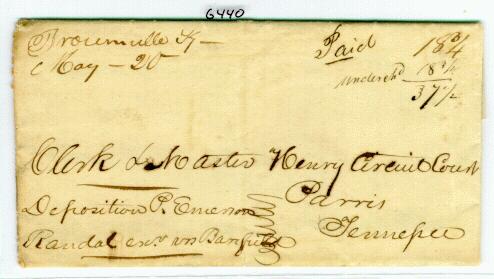 6440
Brownville Ky —
May — 20
Paid 18 3/4
underch'd 18 3/4
37 1/2
Clerk & Master Henry Circuit Court
Parris
Tennessee
Deposition P. Emerson
Randal exr vs Banfield